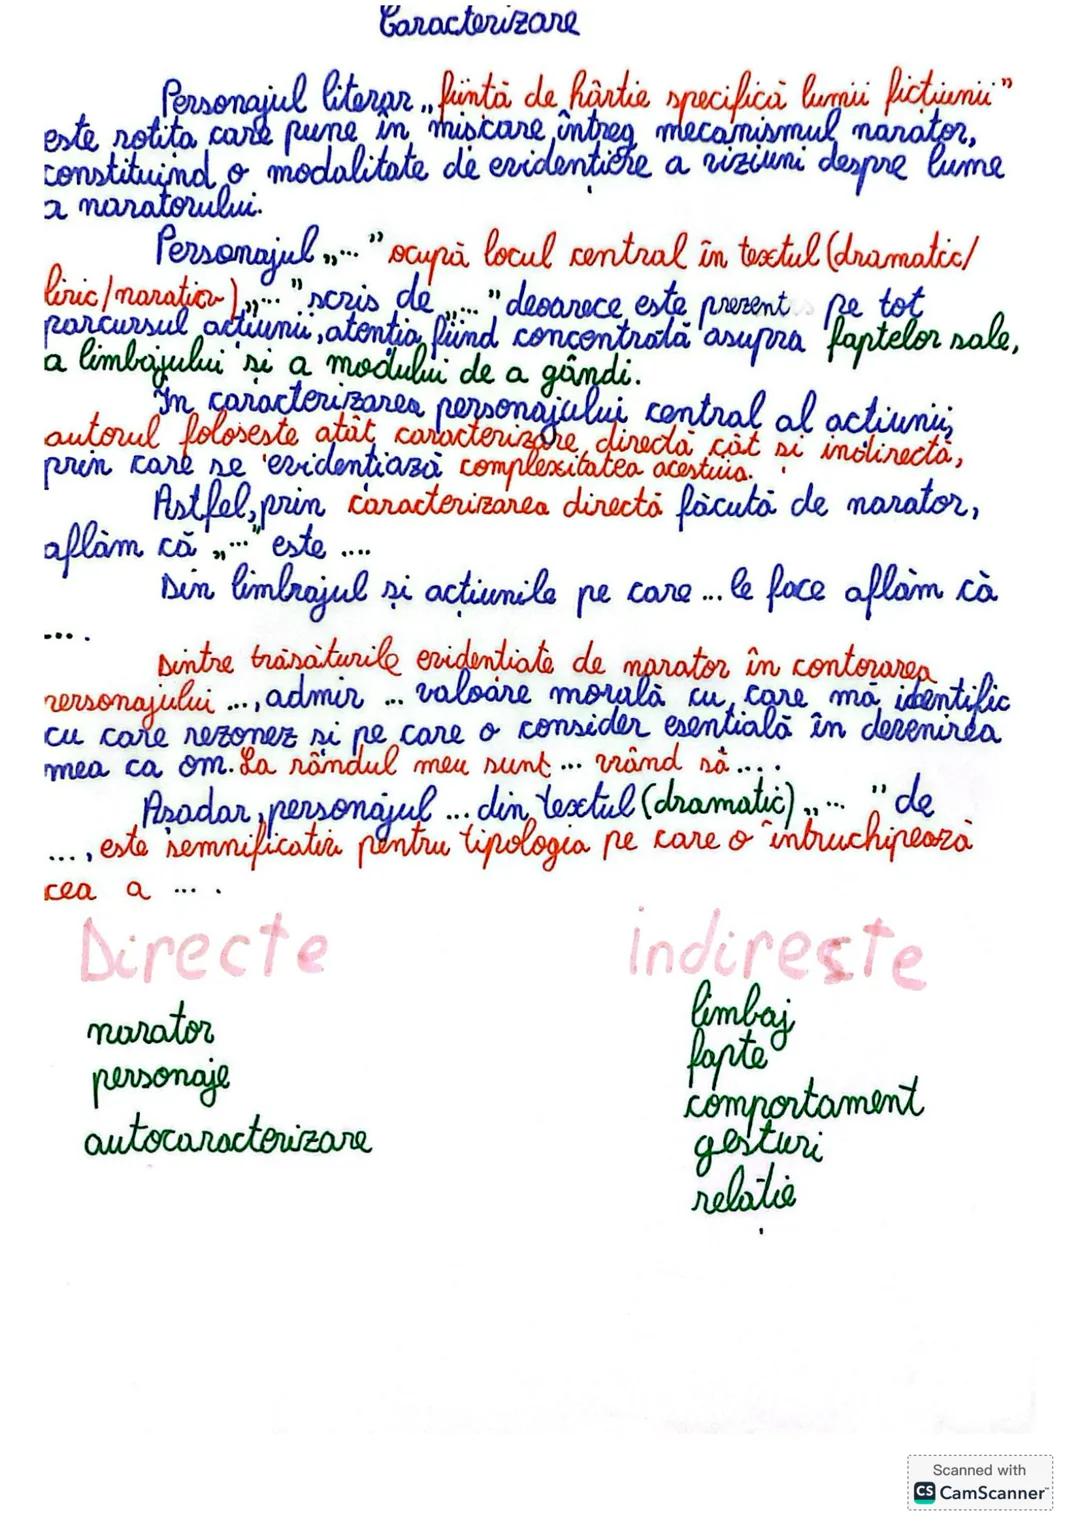 Caracterizare
Personajul literar „fiintă de hârtie specifică lumii fictiunii"
este rotița care pune în miscare întreg mecanismul narator,
constituind o modalitate de evidentiere a viziuni despre lume
a naratorului.
Personajul „..." ocupă locul central în textul (dramatic/
liric/narativ) „..." scris de „..." deoarece este prezent pe tot
parcursul actiunii, atenția fiind concentrată asupra faptelor sale,
a limbajului si a modului de a gândi.
In caracterizarea personajului central al actiunii,
autorul foloseste atât caracterizare directă cât si indirectă,
prin care se evidentiază complexitatea acestuia.
Astfel, prin caracterizarea directă făcută de narator,
aflăm că „..." este ....
Din limbajul si acțiunile pe care ... le face aflăm că
... .
Dintre trăsăturile evidentiate de narator în conturarea
personajului ..., admir ... valoare morală cu care mă identific
cu care rezonez si pe care o consider esentială în devenirea
mea ca om. La rândul meu sunt ... vrând să ... .
Asadar, personajul ... din textul (dramatic) „... " de
..., este semnificativ pentru tipologia pe care o întruchipează
cea a ... .
Directe indirecte
narator limbaj
personaje fapte
autocaracterizare comportament
gesturi
relatie
Scanned with
CS CamScanner